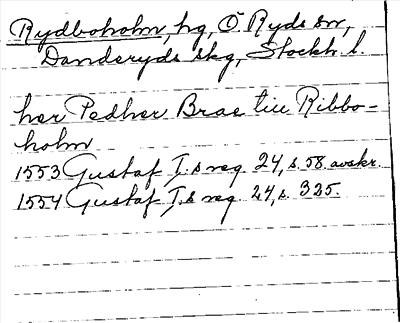 Rydboholm, hg, Ö Ryds sn,
Danderyds skg, Stockh. l.
her Pedher Brae tiu Ribbo-
holm
1553 Gustaf I:s reg 24, s. 58 avskr.
1554 Gustaf I:s reg 24, s. 325.